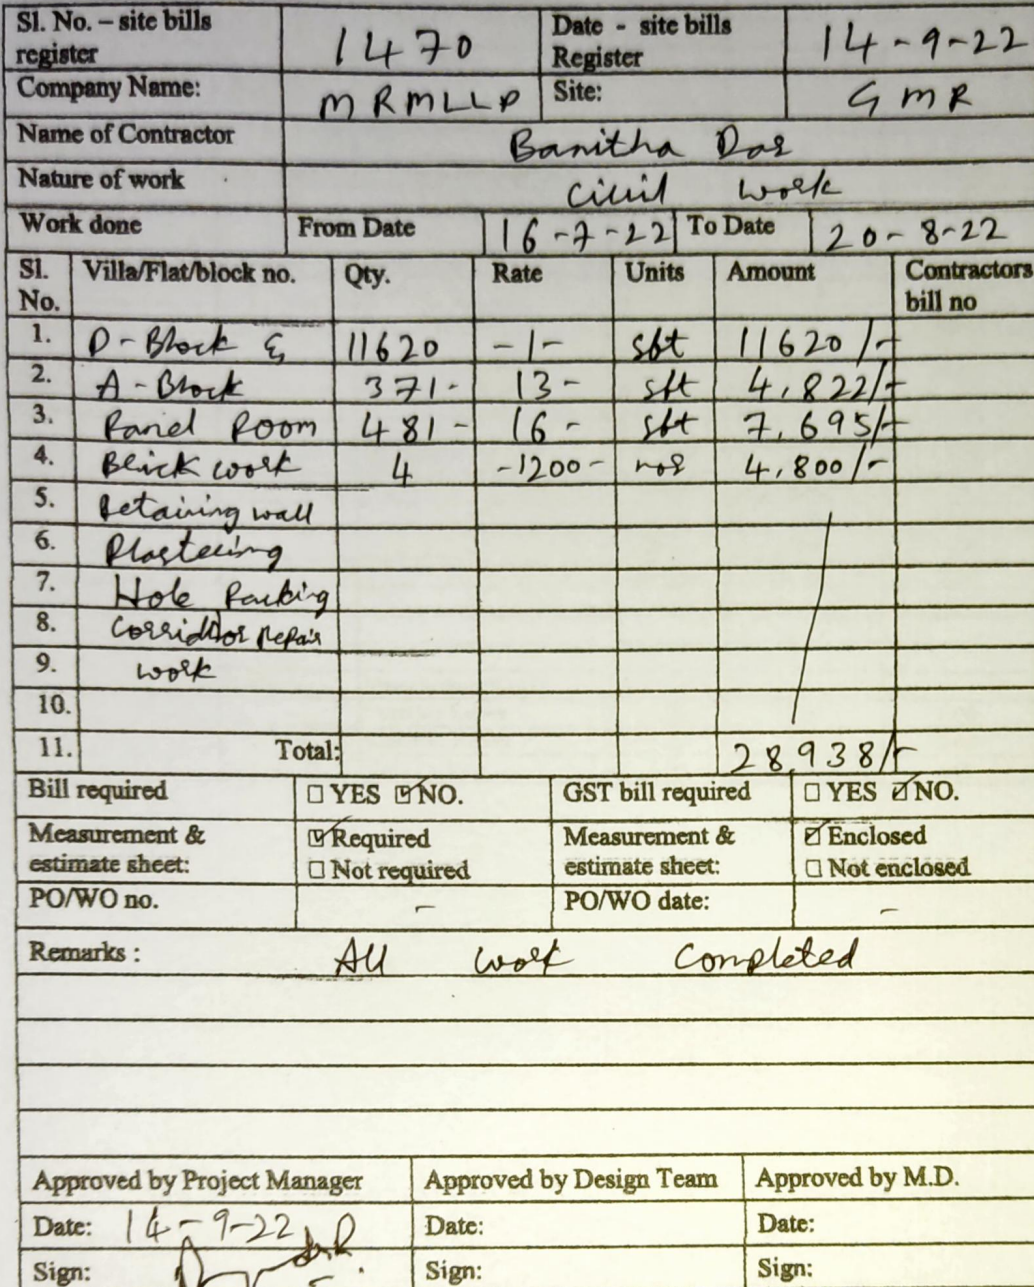 Sl. No. – site bills register 1470 Date - site bills Register 14-9-22
Company Name: MRMLLP Site: GMR
Name of Contractor Banitha Das
Nature of work civil work
Work done From Date 16-7-22 To Date 20-8-22
Sl. No. Villa/Flat/block no. Qty. Rate Units Amount Contractors bill no
1. D-Block & 11620 -1- sft 11620/-
2. A-Block 371- 13- sft 4,822/-
3. Panel Room 481- 16- sft 7,695/-
4. Brick work 4 -1200- nos 4,800/-
5. Retaining wall
6. Plastering
7. Hole Packing
8. Corridor repair
9. work
10.
11. Total: 28,938/-
Bill required ☐ YES ☑ NO. GST bill required ☐ YES ☑ NO.
Measurement & estimate sheet: ☑ Required ☐ Not required Measurement & estimate sheet: ☑ Enclosed ☐ Not enclosed
PO/WO no. - PO/WO date: -
Remarks : All work Completed
Approved by Project Manager Approved by Design Team Approved by M.D.
Date: 14-9-22 Date: Date:
Sign: Sign: Sign: